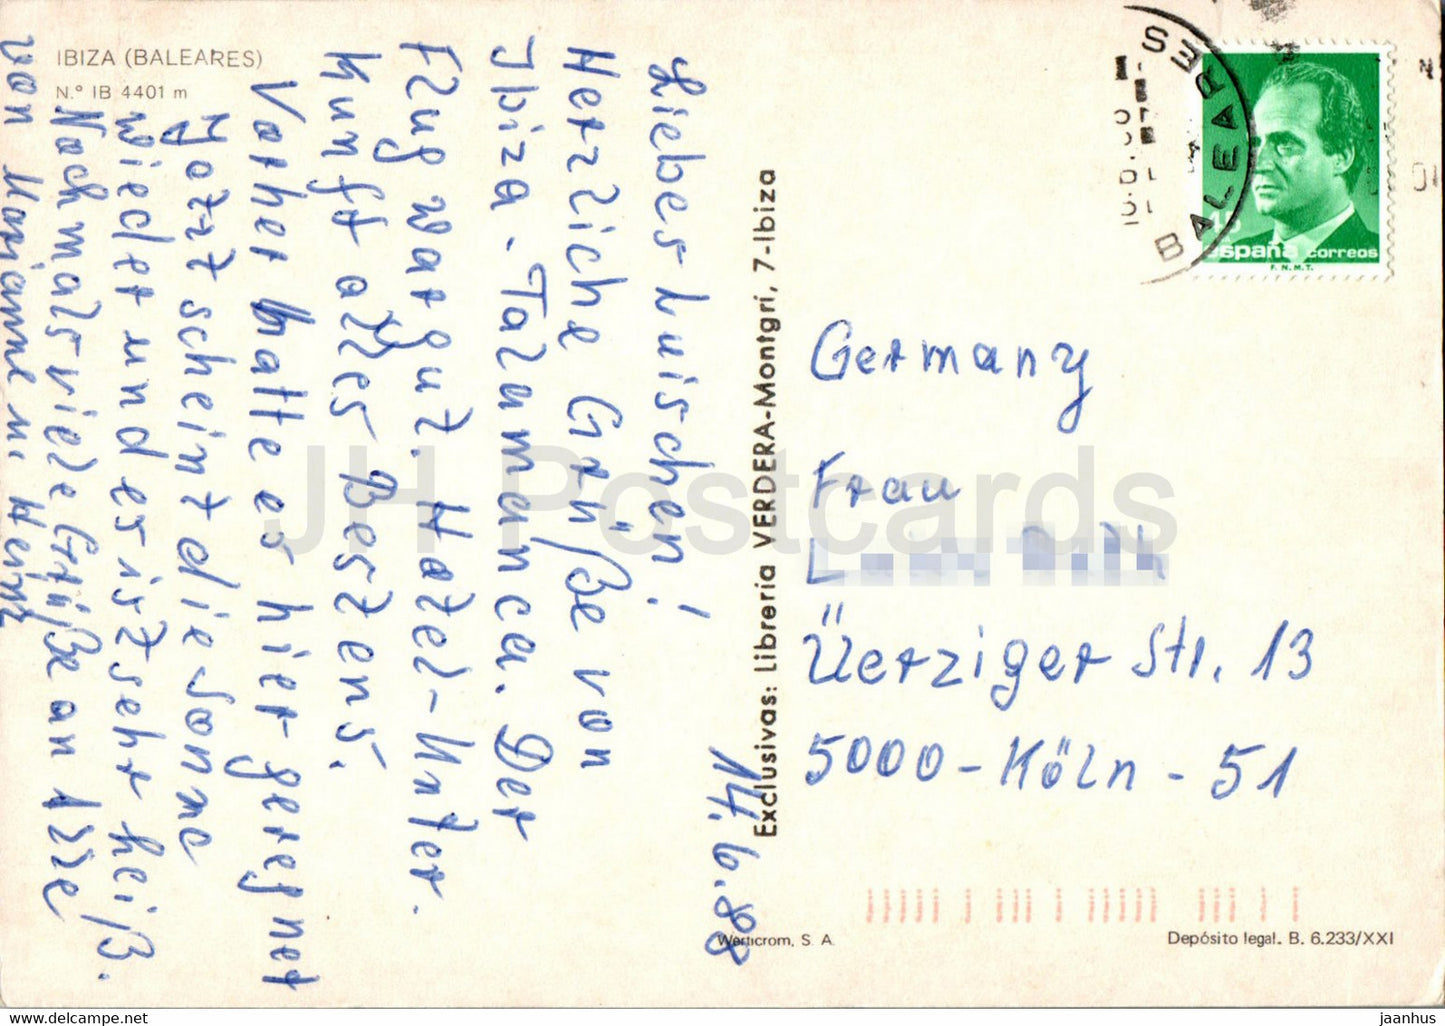 IBIZA (BALEARES)
N.º IB 4401 m
14.6.88
Liebes Luischen!
Herzliche Grüße von
Ibiza - Talamanca. Der
Flug war gut. Hotel-Unter
kunft alles Bestens.
Vorher hatte es hier geregnet
Jetzt scheint die Sonne
wieder und es ist sehr heiß.
Nochmals viele Grüße an alle
von Marianne u. Heinz
Exclusivas: Libreria VERDERA-Montgrí, 7-Ibiza
BALEARES
15
españa correos
F.N.M.T.
Germany
Frau
Üerziger Str. 13
5000 - Köln - 51
Werticrom, S. A.
Depósito legal. B. 6.233/XXI
JH Postcards
www.jh-postcard.com
jaanhus